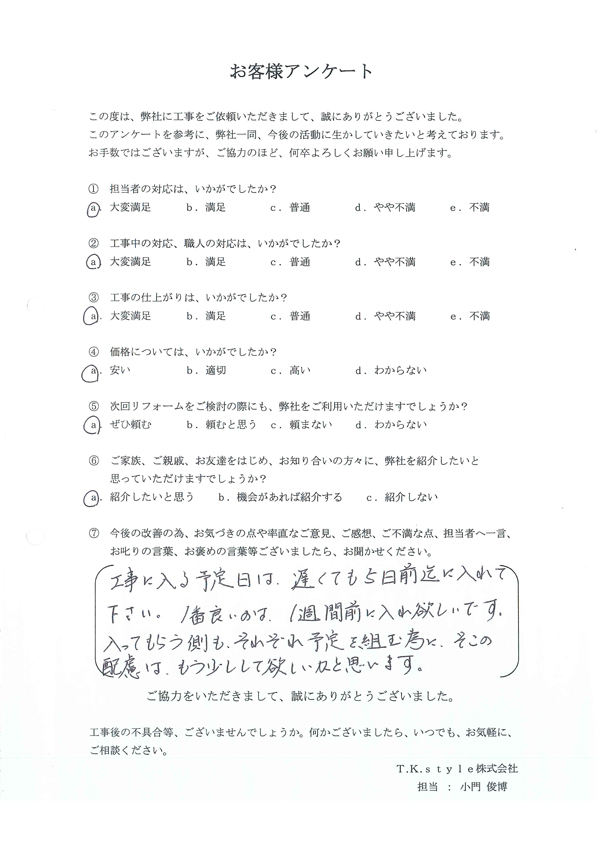 お客様アンケート
この度は、弊社に工事をご依頼いただきまして、誠にありがとうございました。
このアンケートを参考に、弊社一同、今後の活動に生かしていきたいと考えております。
お手数ではございますが、ご協力のほど、何卒よろしくお願い申し上げます。
① 担当者の対応は、いかがでしたか?
a. 大変満足 b. 満足 c. 普通 d. やや不満 e. 不満
② 工事中の対応、職人の対応は、いかがでしたか?
a. 大変満足 b. 満足 c. 普通 d. やや不満 e. 不満
③ 工事の仕上がりは、いかがでしたか?
a. 大変満足 b. 満足 c. 普通 d. やや不満 e. 不満
④ 価格については、いかがでしたか?
a. 安い b. 適切 c. 高い d. わからない
⑤ 次回リフォームをご検討の際にも、弊社をご利用いただけますでしょうか?
a. ぜひ頼む b. 頼むと思う c. 頼まない d. わからない
⑥ ご家族、ご親戚、お友達をはじめ、お知り合いの方々に、弊社を紹介したいと
思っていただけますでしょうか?
a. 紹介したいと思う b. 機会があれば紹介する c. 紹介しない
⑦ 今後の改善の為、お気づきの点や率直なご意見、ご感想、ご不満な点、担当者へ一言、
お叱りの言葉、お褒めの言葉等ございましたら、お聞かせください。
工事に入る予定日は、遅くても5日前迄に入れて
下さい。1番良いのは、1週間前に入れ欲しいです。
入ってもらう側も、それぞれ予定を組む為に、そこの
配慮は、もう少しして欲しいカと思います。
ご協力をいただきまして、誠にありがとうございました。
工事後の不具合等、ございませんでしょうか。何かございましたら、いつでも、お気軽に、
ご相談ください。
T.K.style株式会社
担当 : 小門 俊博